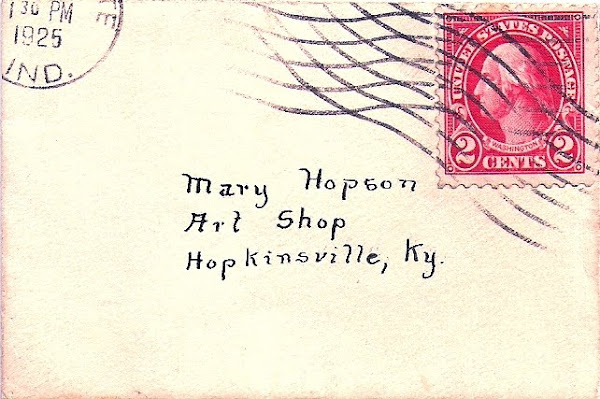 1 30 PM
1925
IND.
UNITED STATES POSTAGE
WASHINGTON
2 CENTS 2
Mary Hopson
Art Shop
Hopkinsville, Ky.